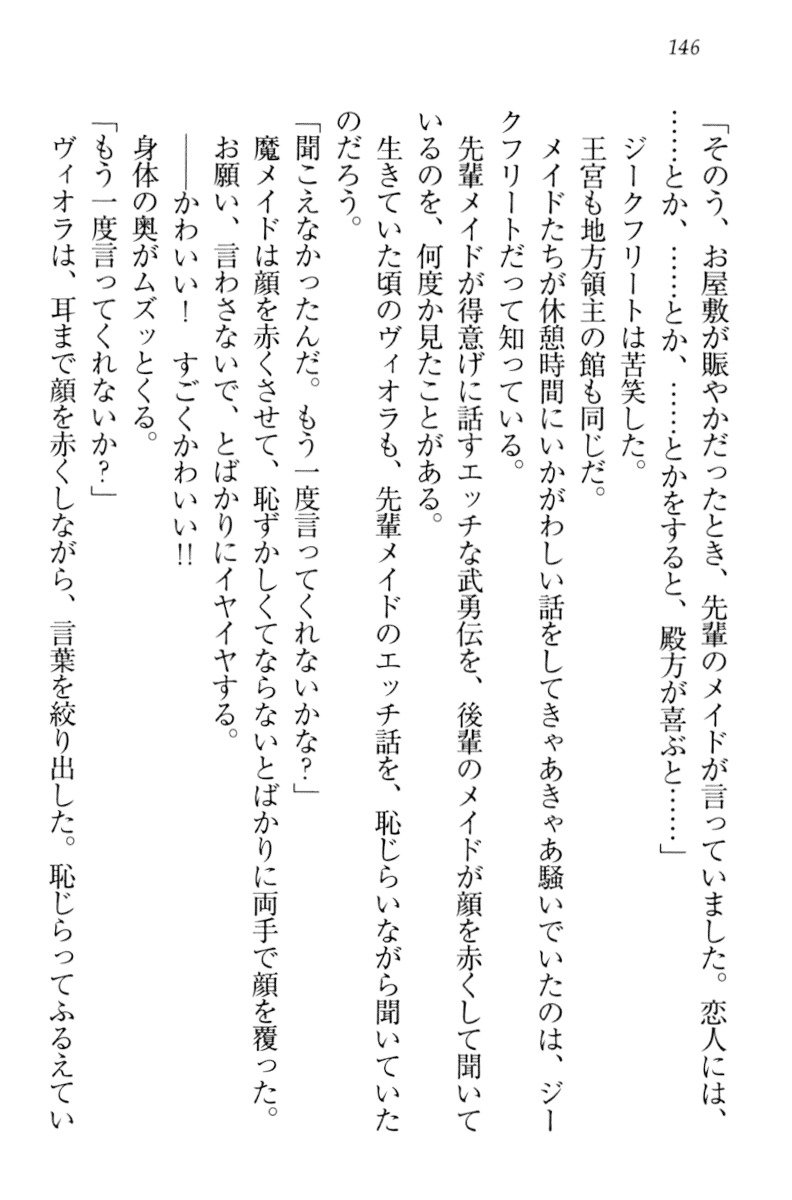 146
「そのう、お屋敷が賑やかだったとき、先輩のメイドが言っていました。恋人には、
……とか、……とか、……とかをすると、殿方が喜ぶと……」
ジークフリートは苦笑した。
王宮も地方領主の館も同じだ。
メイドたちが休憩時間にいかがわしい話をしてきゃあきゃあ騒いでいたのは、ジー
クフリートだって知っている。
先輩メイドが得意げに話すエッチな武勇伝を、後輩のメイドが顔を赤くして聞いて
いるのを、何度か見たことがある。
生きていた頃のヴィオラも、先輩メイドのエッチ話を、恥じらいながら聞いていた
のだろう。
「聞こえなかったんだ。もう一度言ってくれないかな?」
魔メイドは顔を赤くさせて、恥ずかしくてならないとばかりに両手で顔を覆った。
お願い、言わさないで、とばかりにイヤイヤする。
――かわいい! すごくかわいい!!
身体の奥がムズッとくる。
「もう一度言ってくれないか?」
ヴィオラは、耳まで顔を赤くしながら、言葉を絞り出した。恥じらってふるえてい